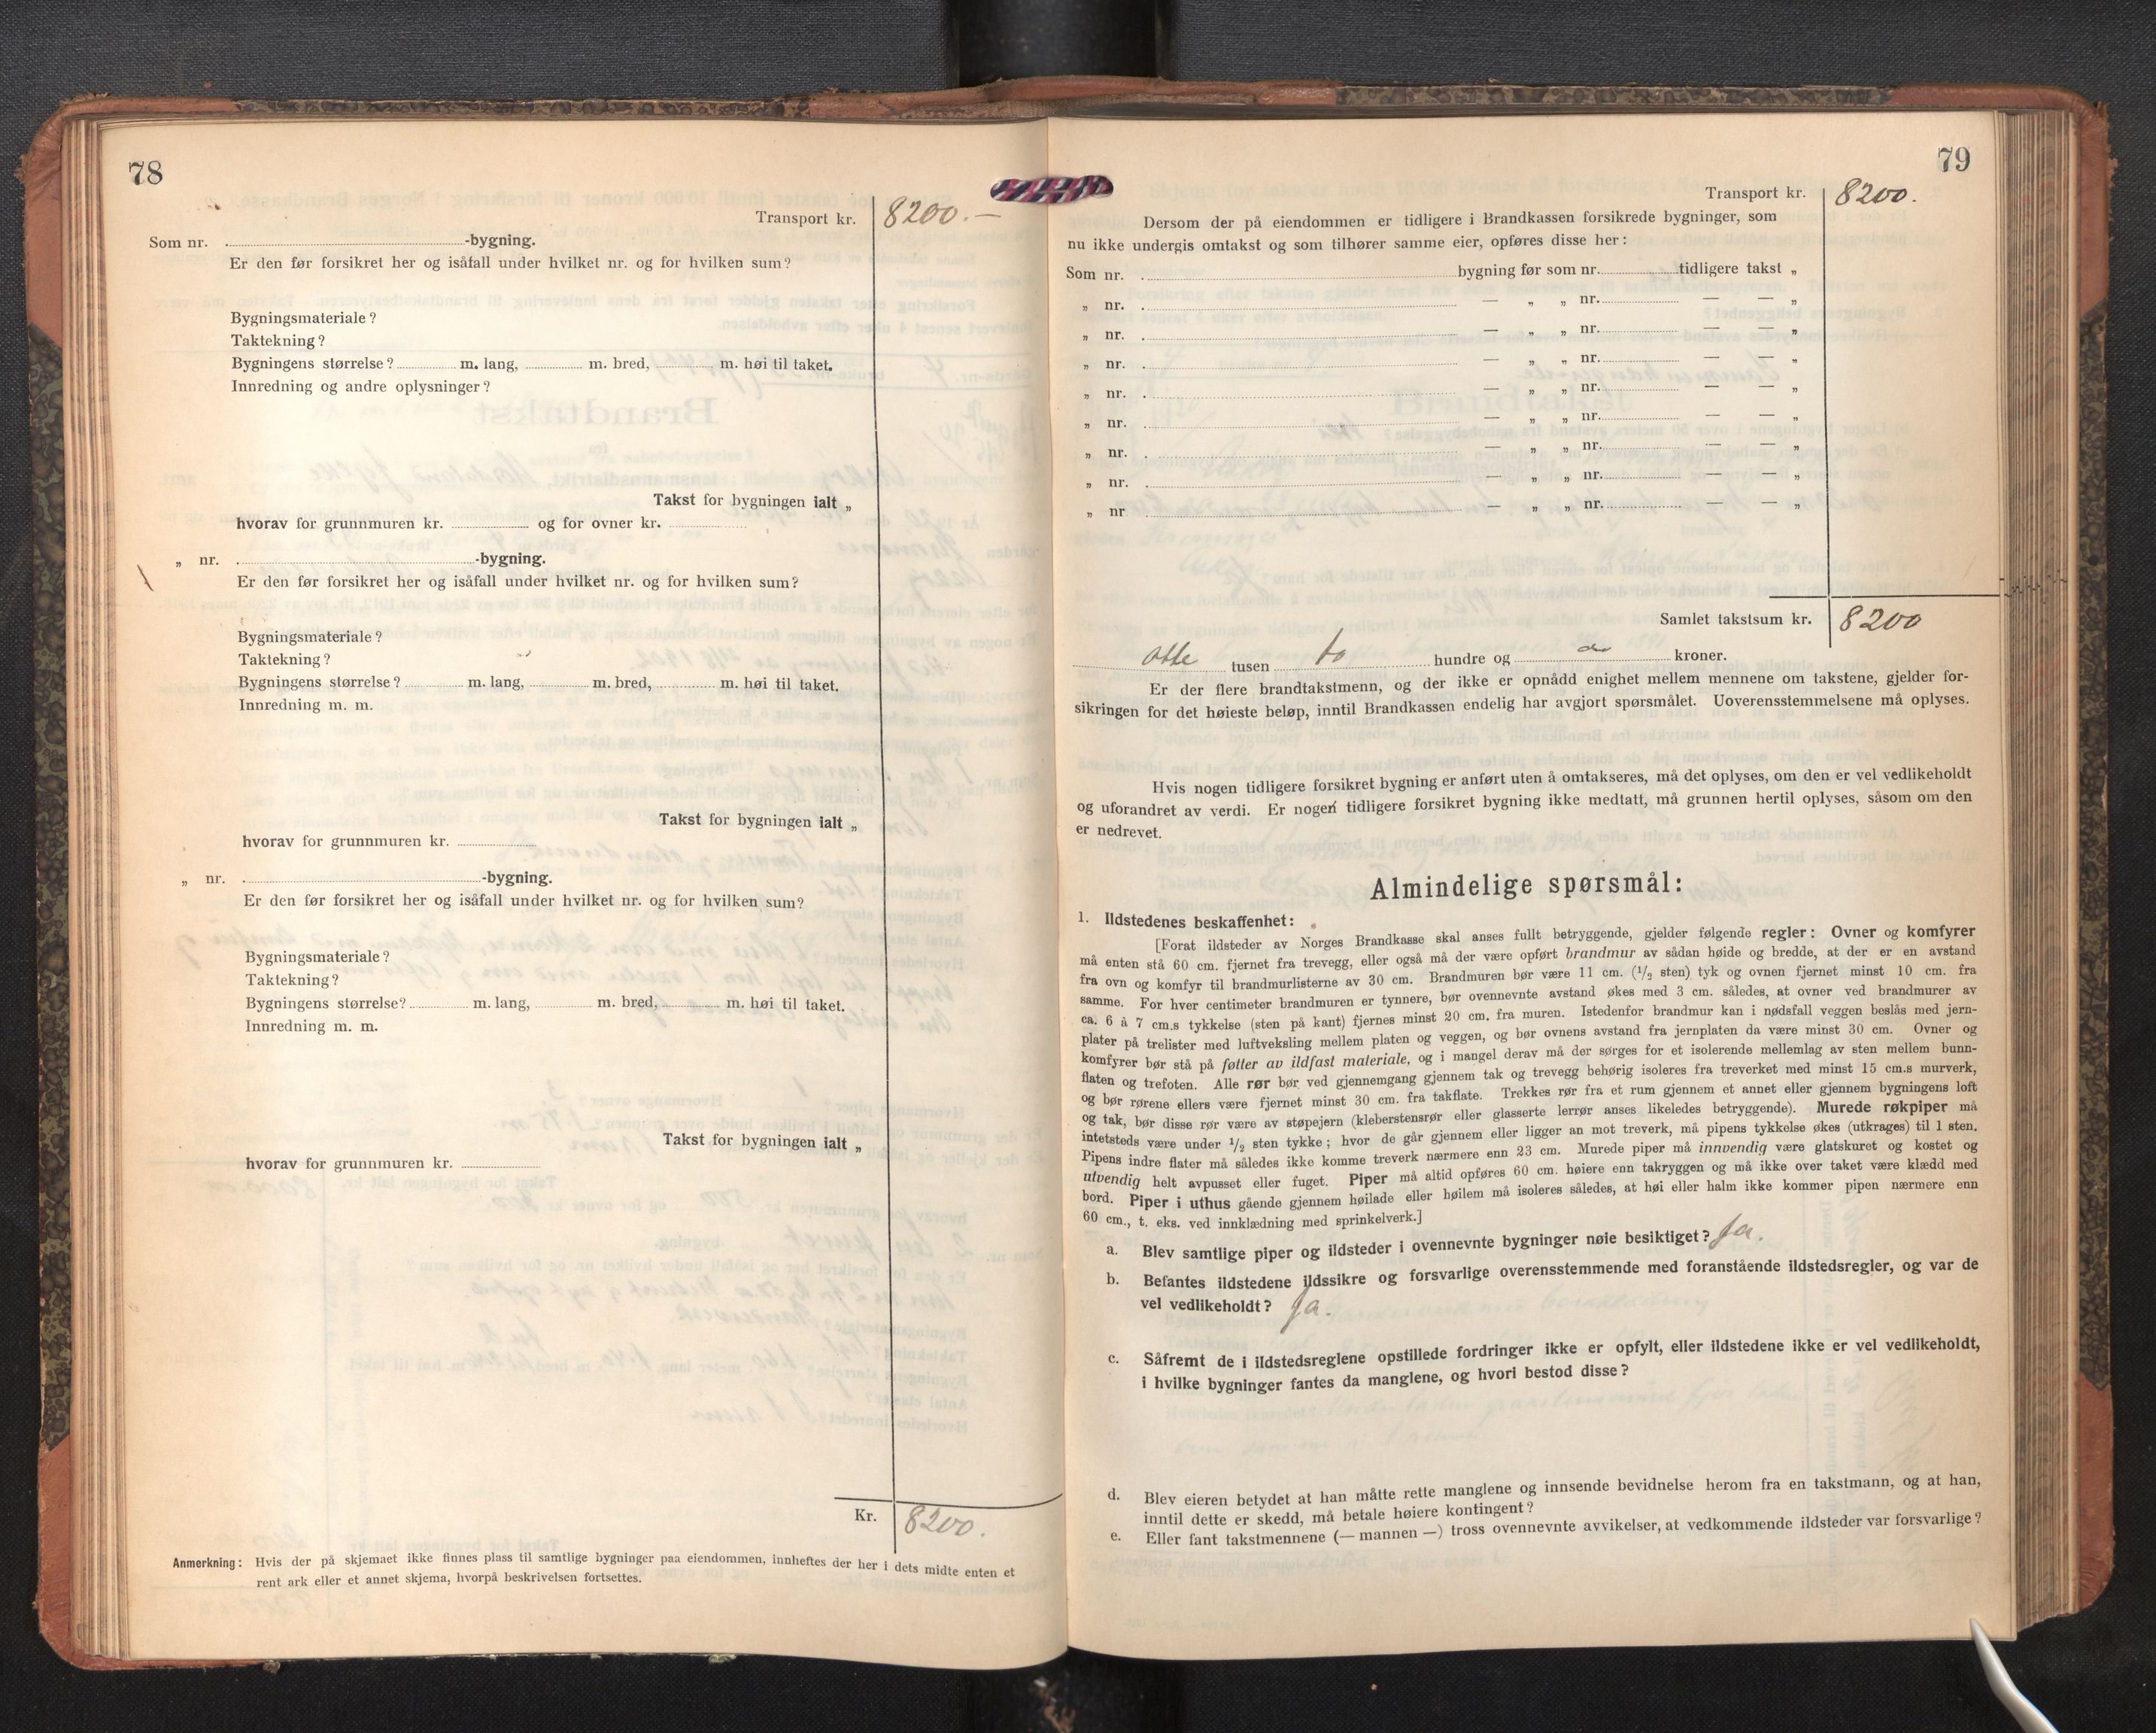 78
Transport kr. 8200.—
Som nr. -bygning.
Er den før forsikret her og isåfall under hvilket nr. og for hvilken sum?
Bygningsmateriale?
Taktekning?
Bygningens størrelse? m. lang, m. bred, m. høi til taket.
Innredning og andre oplysninger?
Takst for bygningen ialt „
hvorav for grunnmuren kr. og for ovner kr.
„ nr. -bygning.
Er den før forsikret her og isåfall under hvilket nr. og for hvilken sum?
Bygningsmateriale?
Taktekning?
Bygningens størrelse? m. lang, m. bred, m. høi til taket.
Innredning m. m.
Takst for bygningen ialt „
hvorav for grunnmuren kr.
„ nr. -bygning.
Er den før forsikret her og isåfall under hvilket nr. og for hvilken sum?
Bygningsmateriale?
Taktekning?
Bygningens størrelse? m. lang, m. bred, m. høi til taket.
Innredning m. m.
Takst for bygningen ialt „
hvorav for grunnmuren kr.
Kr. 8200.
Anmerkning: Hvis der på skjemaet ikke finnes plass til samtlige bygninger paa eiendommen, innheftes der her i dets midte enten et
rent ark eller et annet skjema, hvorpå beskrivelsen fortsettes.
79
Transport kr. 8200.
Dersom der på eiendommen er tidligere i Brandkassen forsikrede bygninger, som
nu ikke undergis omtakst og som tilhører samme eier, opføres disse her:
Som nr. bygning før som nr. tidligere takst „
„ nr. — „ „ nr. — — „
„ nr. — „ „ nr. — — „
„ nr. — „ „ nr. — — „
„ nr. — „ „ nr. — — „
„ nr. — „ „ nr. — — „
„ nr. — „ „ nr. — — „
„ nr. — „ „ nr. — — „
„ nr — „ „ nr. — — „
Samlet takstsum kr. 8200
otte tusen to hundre og kroner.
Er der flere brandtakstmenn, og der ikke er opnådd enighet mellem mennene om takstene, gjelder for-
sikringen for det høieste beløp, inntil Brandkassen endelig har avgjort spørsmålet. Uoverensstemmelsene må oplyses.
Hvis nogen tidligere forsikret bygning er anført uten å omtakseres, må det oplyses, om den er vel vedlikeholdt
og uforandret av verdi. Er nogen tidligere forsikret bygning ikke medtatt, må grunnen hertil oplyses, såsom om den
er nedrevet.
Almindelige spørsmål:
1. Ildstedenes beskaffenhet:
[Forat ildsteder av Norges Brandkasse skal anses fullt betryggende, gjelder følgende regler: Ovner og komfyrer
må enten stå 60 cm. fjernet fra trevegg, eller også må der være opført brandmur av sådan høide og bredde, at der er en avstand
fra ovn og komfyr til brandmurlisterne av 30 cm. Brandmuren bør være 11 cm. (1/2 sten) tyk og ovnen fjernet minst 10 cm. fra
samme. For hver centimeter brandmuren er tynnere, bør ovennevnte avstand økes med 3 cm. således, at ovner ved brandmurer av
ca. 6 à 7 cm.s tykkelse (sten på kant) fjernes minst 20 cm. fra muren. Istedenfor brandmur kan i nødsfall veggen beslås med jern-
plater på trelister med luftveksling mellem platen og veggen, og bør ovnens avstand fra jernplaten da være minst 30 cm. Ovner og
komfyrer bør stå på føtter av ildfast materiale, og i mangel derav må der sørges for et isolerende mellemlag av sten mellem bunn-
flaten og trefoten. Alle rør bør ved gjennemgang gjennem tak og trevegg behørig isoleres fra treverket med minst 15 cm.s murverk,
og bør rørene ellers være fjernet minst 30 cm. fra takflate. Trekkes rør fra et rum gjennem et annet eller gjennem bygningens loft
og tak, bør disse rør være av støpejern (kleberstensrør eller glasserte lerrør anses likeledes betryggende). Murede røkpiper må
intetsteds være under 1/2 sten tykke; hvor de går gjennem eller ligger an mot treverk, må pipens tykkelse økes (utkrages) til 1 sten.
Pipens indre flater må således ikke komme treverk nærmere enn 23 cm. Murede piper må innvendig være glatskuret og kostet og
utvendig helt avpusset eller fuget. Piper må altid opføres 60 cm. høiere enn takryggen og må ikke over taket være klædd med
bord. Piper i uthus gående gjennem høilade eller høilem må isoleres således, at høi eller halm ikke kommer pipen nærmere enn
60 cm., t. eks. ved innklædning med sprinkelverk.]
a. Blev samtlige piper og ildsteder i ovennevnte bygninger nøie besiktiget? Ja.
b. Befantes ildstedene ildssikre og forsvarlige overensstemmende med foranstående ildstedsregler, og var de
vel vedlikeholdt? Ja.
c. Såfremt de i ildstedsreglene opstillede fordringer ikke er opfylt, eller ildstedene ikke er vel vedlikeholdt,
i hvilke bygninger fantes da manglene, og hvori bestod disse?
d. Blev eieren betydet at han måtte rette manglene og innsende bevidnelse herom fra en takstmann, og at han,
inntil dette er skedd, må betale høiere kontingent?
e. Eller fant takstmennene (— mannen —) tross ovennevnte avvikelser, at vedkommende ildsteder var forsvarlige?